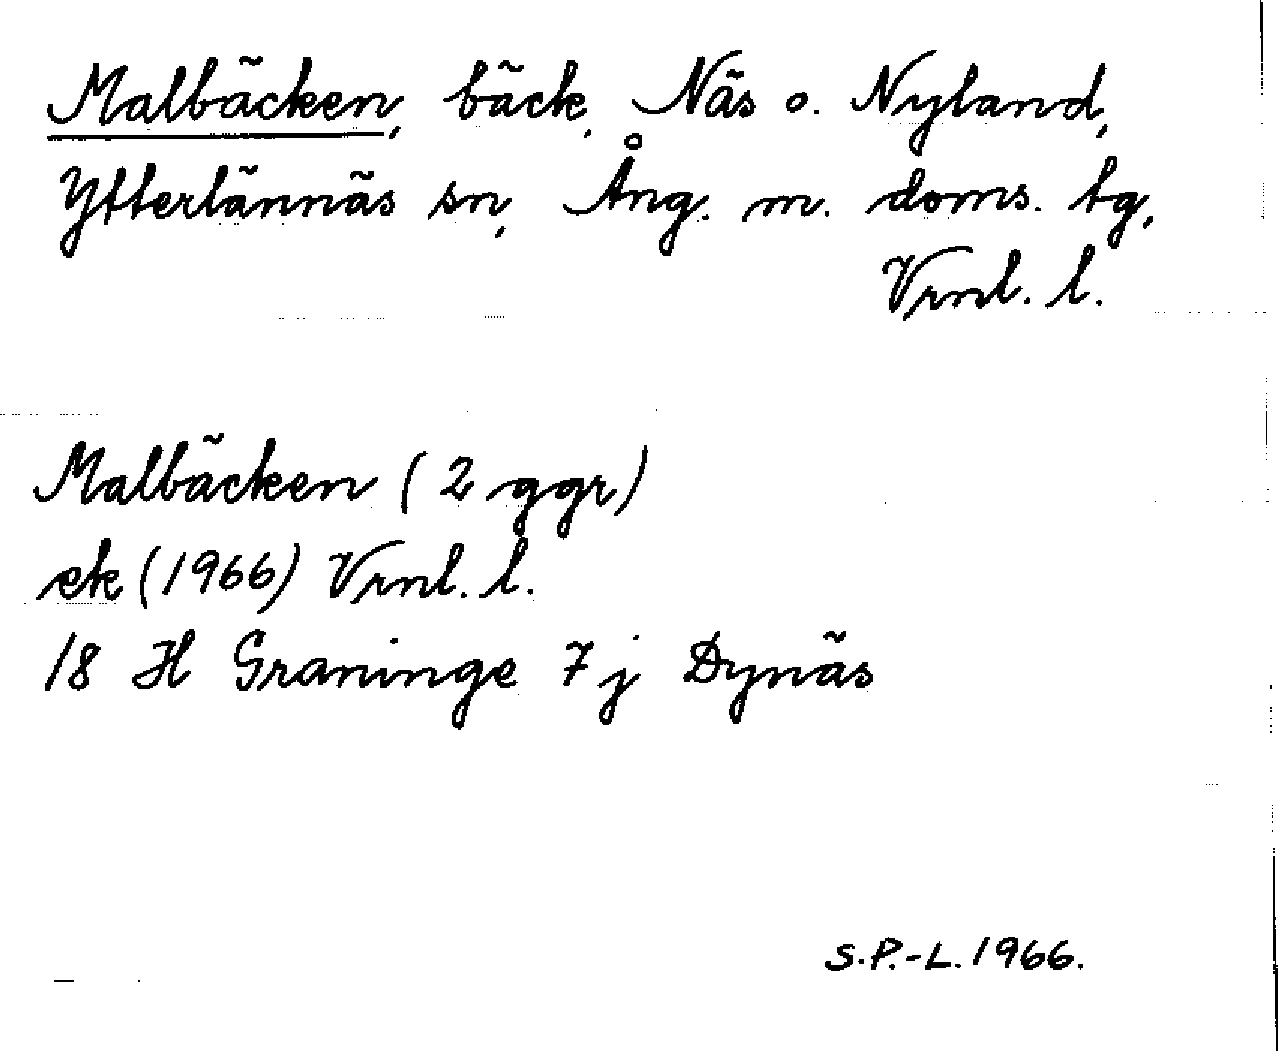 Malbäcken, bäck, Näs o. Nyland,
Ytterlännäs sn, Ång. m. doms. tg,
Vrnl. l.
Malbäcken (2 ggr)
ek (1966) Vrnl. l.
18 H Graninge 7 j Dynäs
S.P.-L. 1966.